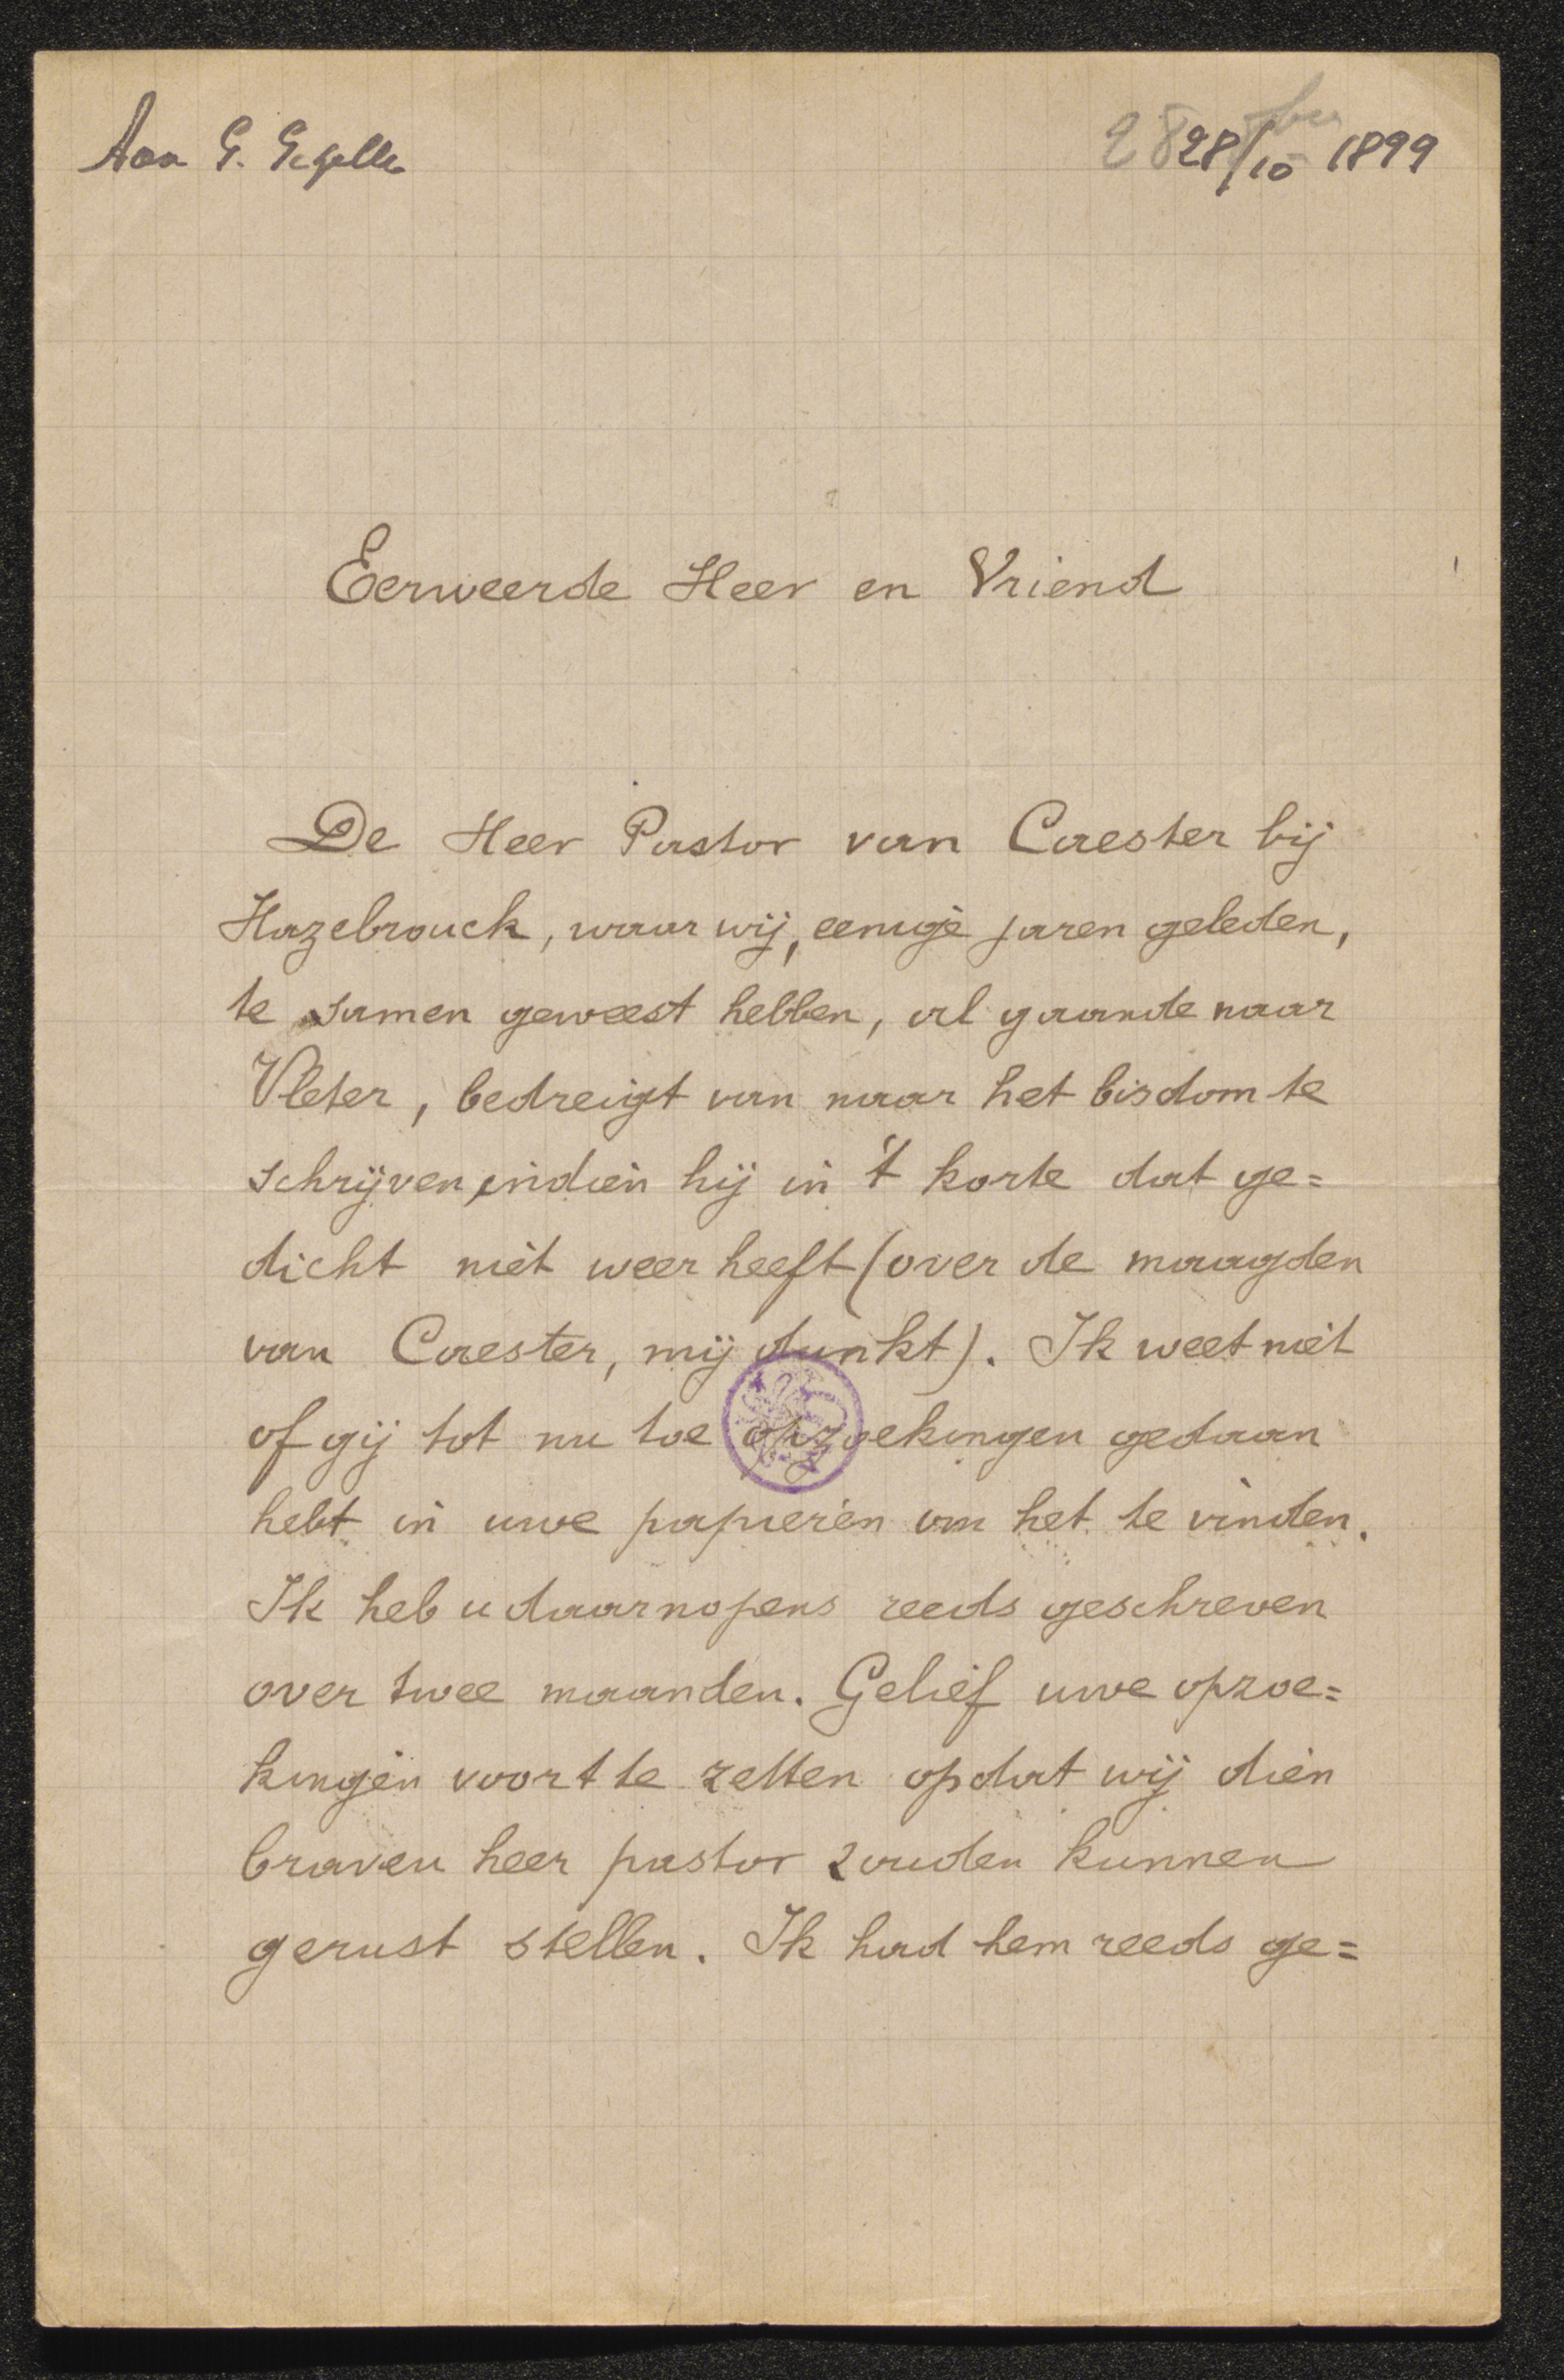 Aan G. Gezelle
28 28/10 1899
Eerweerde Heer en Vriend
De Heer Pastor van Caester bij
Hazebrouck, waar wij, eenige jaren geleden,
te samen geweest hebben, al gaande naar
Vleter, bedreigt van naar het bisdom te
schrijven, indien hij in 't korte dat ge=
dicht niet weer heeft (over de maagden
van Caester, mij dunkt). Ik weet niet
of gij tot nu toe opzoekingen gedaan
hebt in uwe papieren om het te vinden.
Ik heb u daarnopens reeds geschreven
over twee maanden. Gelief uwe opzoe=
kingen voort te zetten opdat wij dien
braven heer pastor zouden kunnen
gerust stellen. Ik had hem reeds ge=